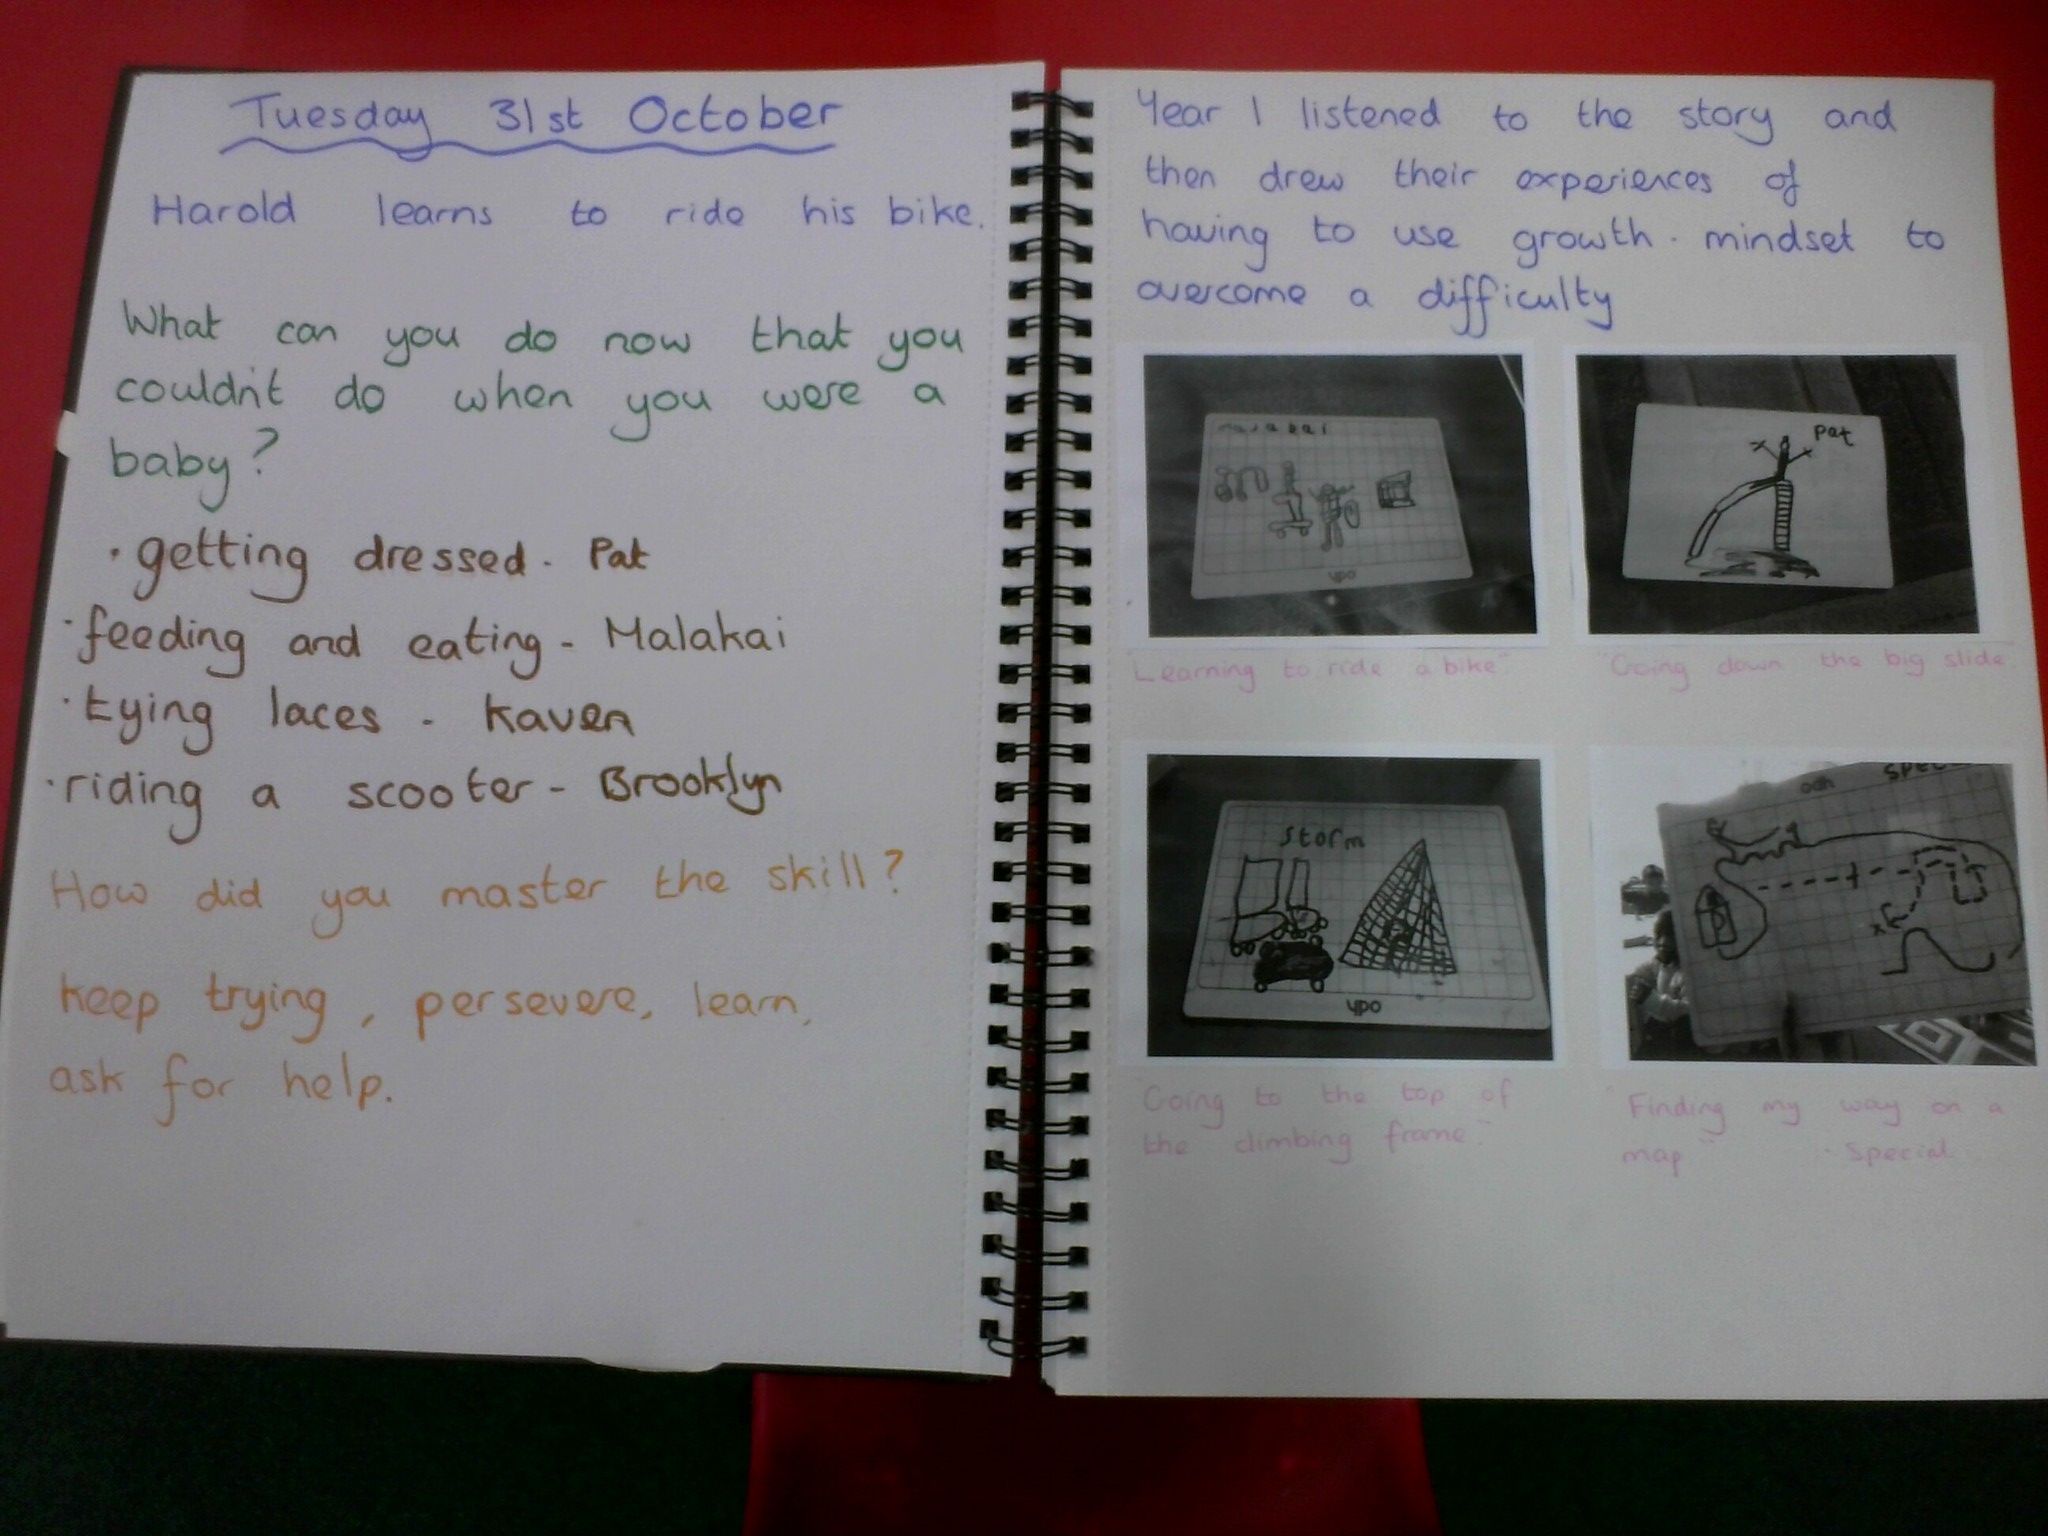 Tuesday 31st October
Harold learns to ride his bike.
What can you do now that you
couldn't do when you were a
baby?
· getting dressed. Pat
· feeding and eating - Malakai
· tying laces - Kaven
· riding a scooter - Brooklyn
How did you master the skill?
keep trying, persevere, learn,
ask for help.
Year 1 listened to the story and
then drew their experiences of
having to use growth. mindset to
overcome a difficulty
malakai
ypo
Pat
"Learning to ride a bike"
"Going down the big slide"
storm
ypo
"Going to the top of
the climbing frame."
"Finding my way on a
map" - Special